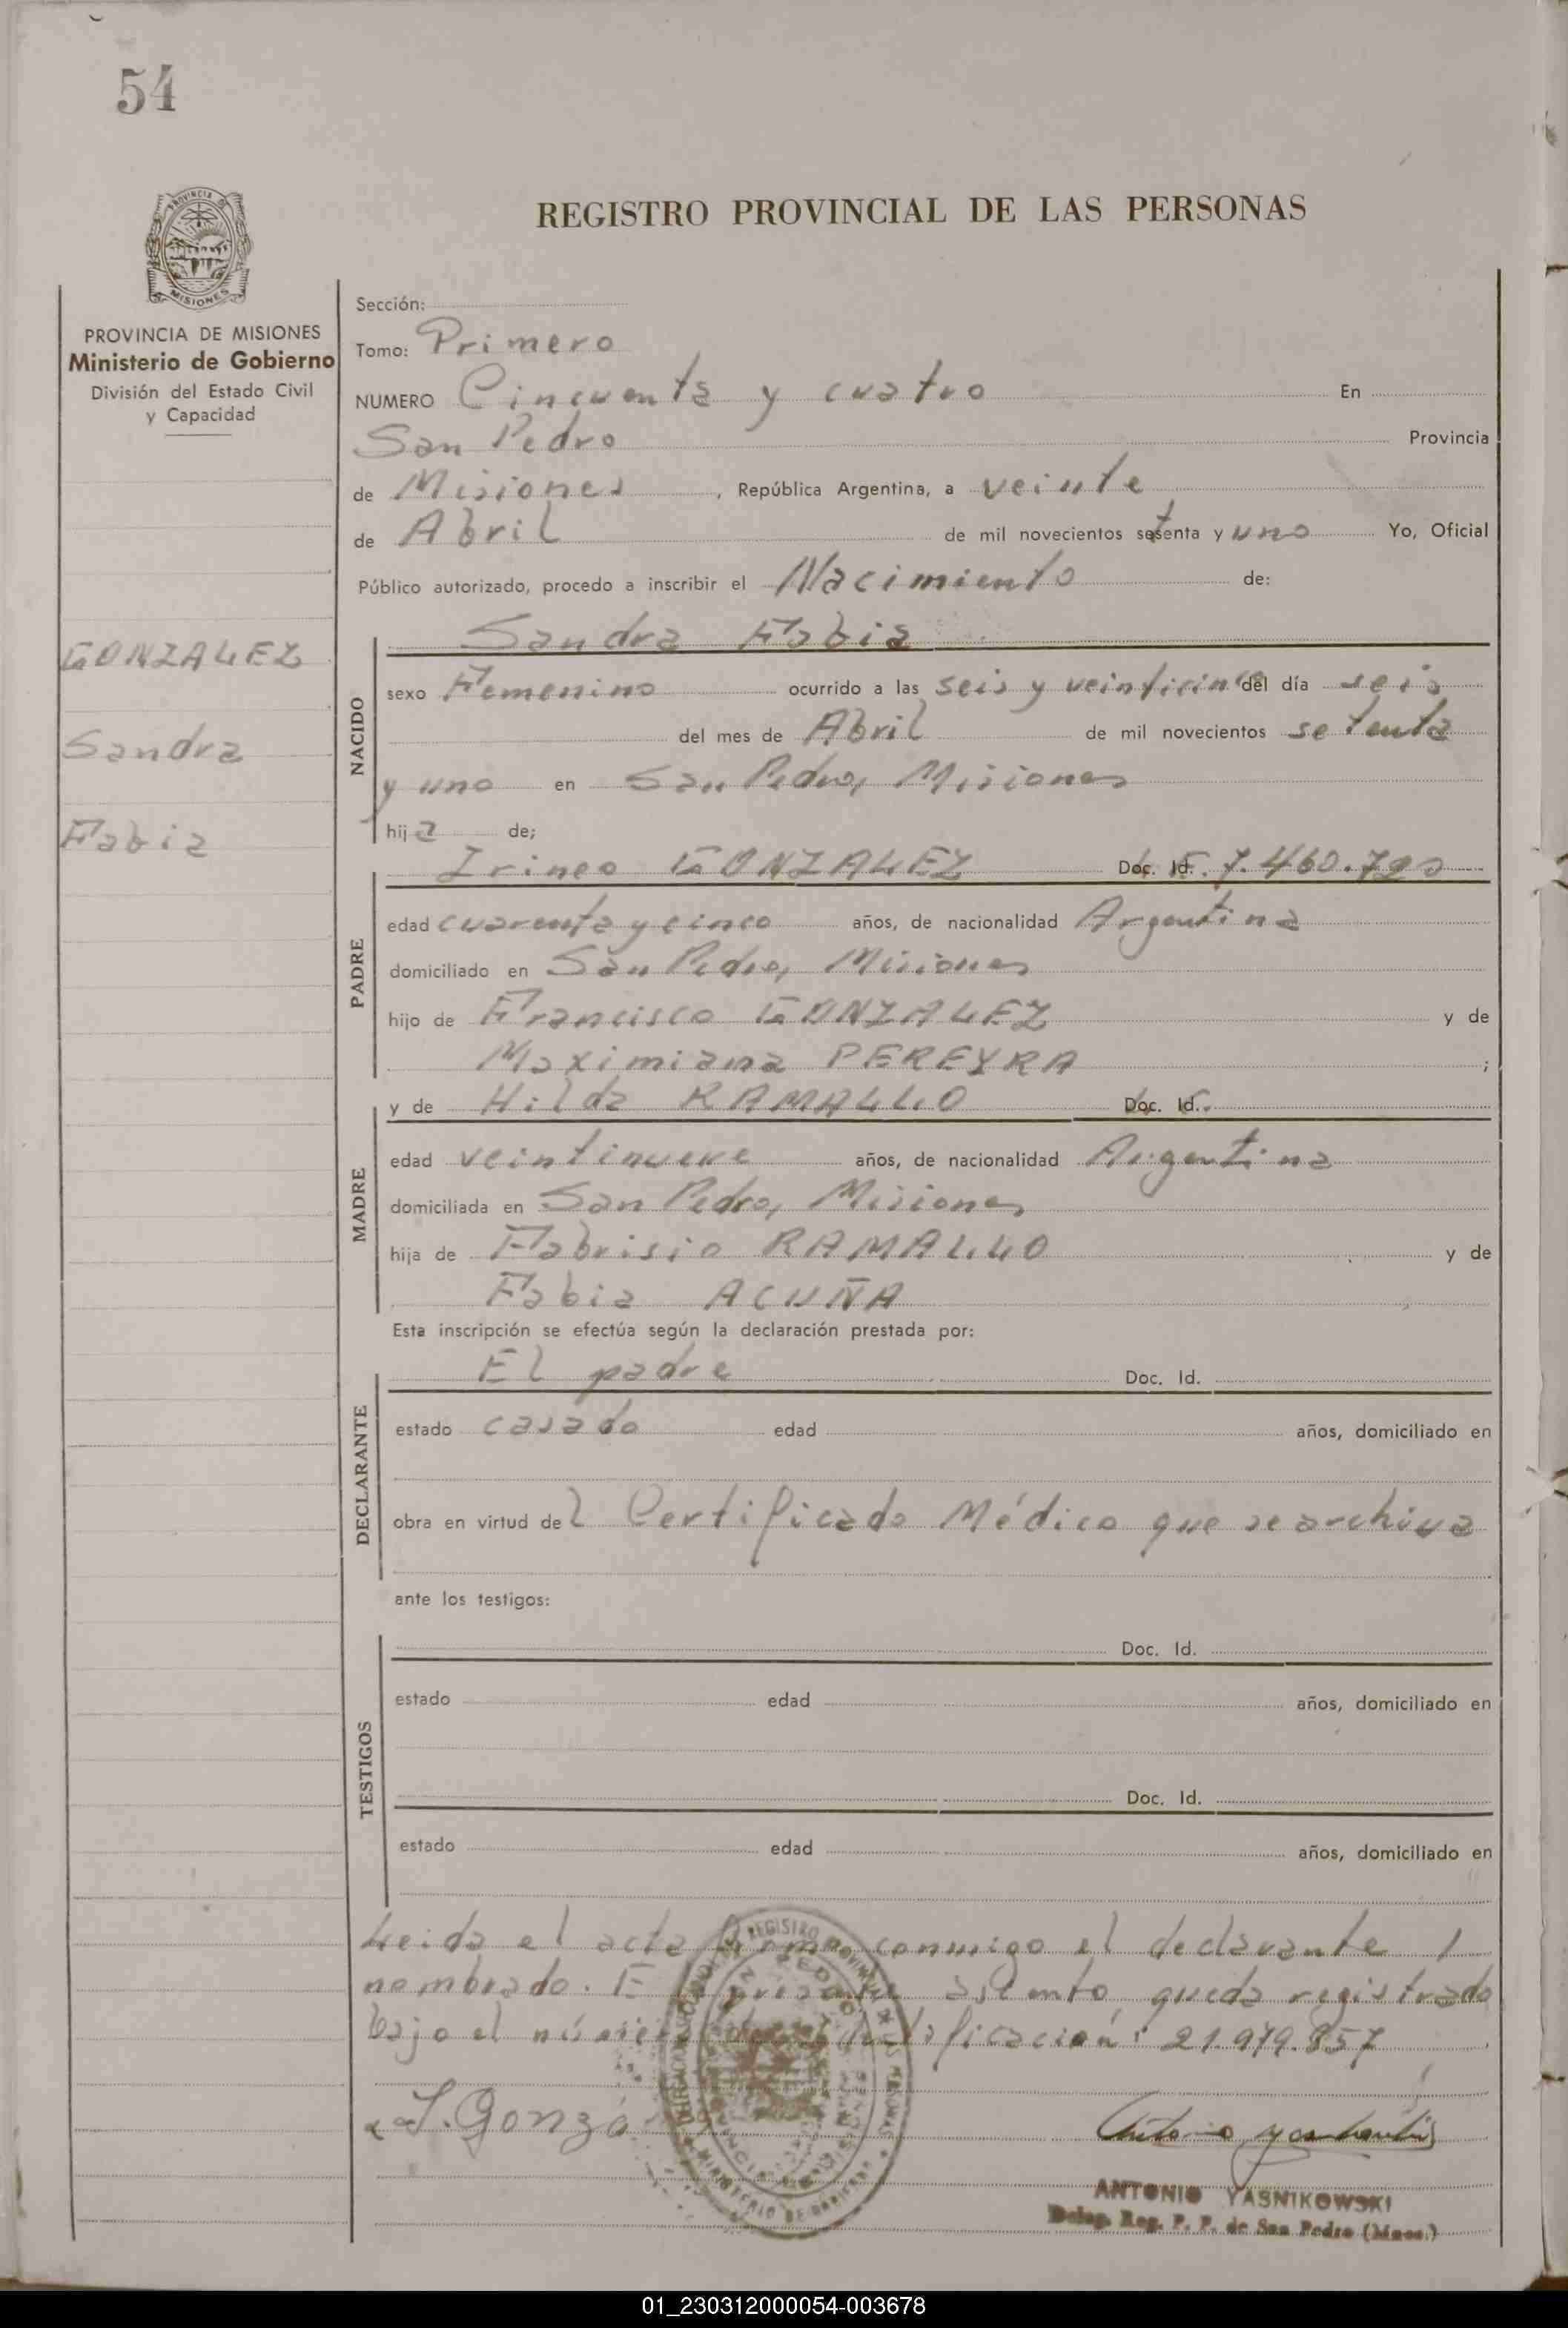 54
PROVINCIA DE
MISIONES
PROVINCIA DE MISIONES
Ministerio de Gobierno
División del Estado Civil
y Capacidad
GONZALEZ
Sandra
Fabia
REGISTRO PROVINCIAL DE LAS PERSONAS
Sección:
Tomo: Primero
NUMERO Cincuenta y cuatro En
San Pedro Provincia
de Misiones, República Argentina, a veinte
de Abril de mil novecientos setenta y uno Yo, Oficial
Público autorizado, procedo a inscribir el Nacimiento de:
Sandra Fabia
NACIDO
sexo Femenino ocurrido a las seis y veinticinco del día seis
del mes de Abril de mil novecientos setenta
y uno en San Pedro, Misiones
hija de;
Irineo GONZALEZ Doc. Id. 7.460.790
PADRE
edad cuarenta y cinco años, de nacionalidad Argentina
domiciliado en San Pedro, Misiones
hijo de Francisco GONZALEZ y de
Maximiana PEREYRA ;
y de Hilda RAMALLO Doc. Id.
MADRE
edad veintinueve años, de nacionalidad Argentina
domiciliada en San Pedro, Misiones
hija de Fabrisio RAMALLO y de
Fabia ACUÑA
Esta inscripción se efectúa según la declaración prestada por:
El padre Doc. Id.
DECLARANTE
estado casado edad años, domiciliado en
obra en virtud del Certificado Médico que se archiva
ante los testigos:
Doc. Id.
TESTIGOS
estado edad años, domiciliado en
Doc. Id.
estado edad años, domiciliado en
Leida el acta firma conmigo el declarante
nombrado. El presente asiento queda registrado
bajo el número de identificación: 21.979.857
I. Gonzá
ANTONIO YASNIKOWSKI
Deleg. Reg. P. P. de San Pedro (Mnes.)
01_230312000054-003678